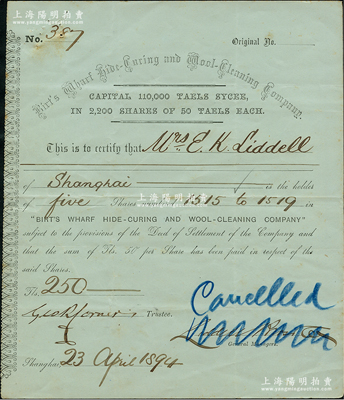 上海陽明拍賣
SHANGHAI YOUNG MING AUCTION
No. 387 Original No.
Birt's Wharf Hide-Curing and Wool-Cleaning Company.
CAPITAL 110,000 TAELS SYCEE,
IN 2,200 SHARES OF 50 TAELS EACH.
This is to certify that Mrs. E. K. Liddell
of Shanghai is the holder
of five Shares 1515 to 1519 in
"BIRT'S WHARF HIDE-CURING AND WOOL-CLEANING COMPANY"
subject to the provisions of the Deed of Settlement of the Company and
that the sum of Tls. 50 per Share has been paid in respect of the
said Shares.
Tls. 250
Cancelled
Trustee.
General Managers.
Shanghai, 23 April 1894
上海陽明拍賣